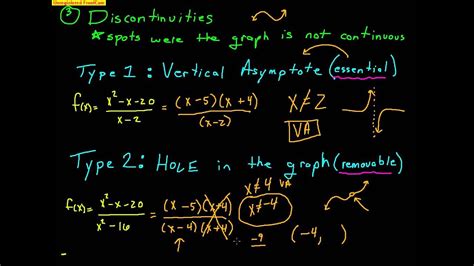 Unregistered FrontCam
③ Discontinuities
* spots were the graph is not continuous
Type 1: Vertical Asymptote (essential)
f(x) = x²-x-20 / x-2 = (x-5)(x+4) / (x-2) x≠2
VA
Type 2: HOLE in the graph (removable)
f(x) = x²-x-20 / x²-16 = (x-5)(x+4) / (x-4)(x+4) x≠4 VA
x≠-4
-9 (-4,